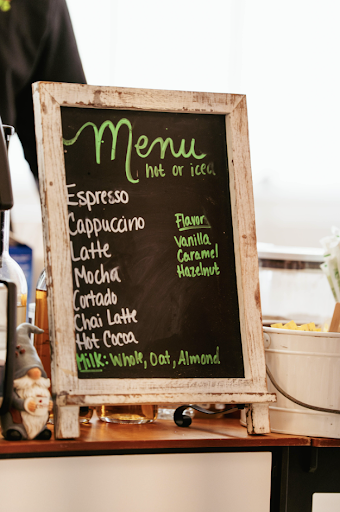 Menu
hot or iced
Espresso
Cappuccino
Latte
Mocha
Cortado
Chai Latte
Hot Cocoa
Flavor
Vanilla
Caramel
Hazelnut
Milk: Whole, Oat, Almond